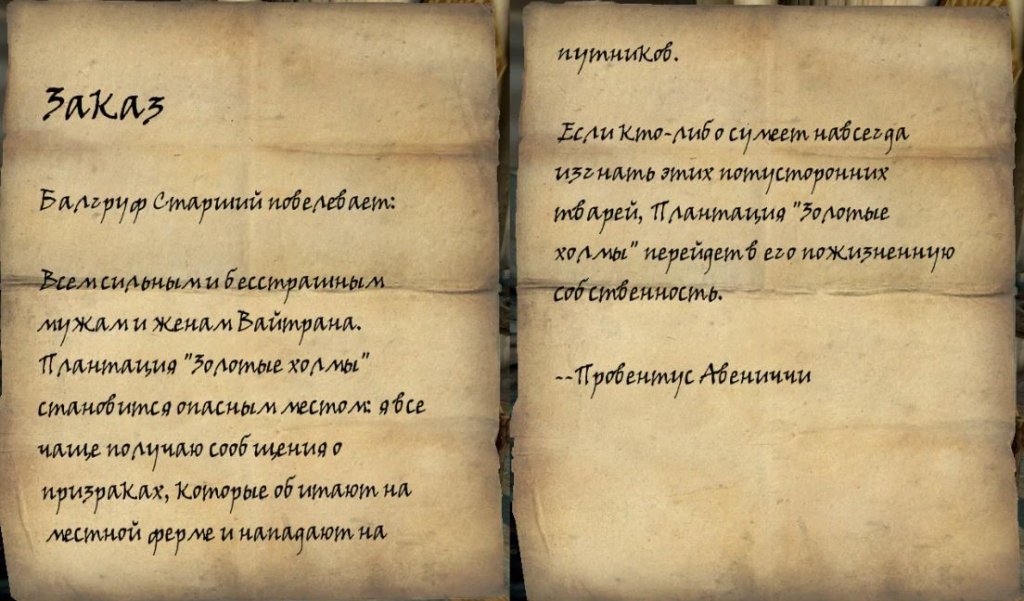 Заказ
Балгруф Старший повелевает:
Всем сильным и бесстрашным
мужам и женам Вайтрана.
Плантация "Золотые холмы"
становится опасным местом: я все
чаще получаю сообщения о
призраках, которые обитают на
местной ферме и нападают на
путников.
Если кто-либо сумеет навсегда
изгнать этих потусторонних
тварей, Плантация "Золотые
холмы" перейдет в его пожизненную
собственность.
--Провентус Авениччи